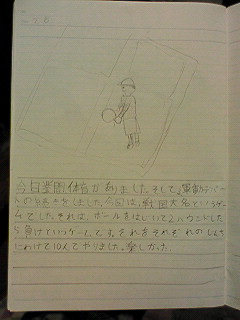 今日 体育がありました。そして、運動デパー
トの続きをしました。今回は、戦国大名というゲ
ームでした。それは、ボールをはじいて2バウンドした
ら負けというゲームです。それをそれぞれの
にわけて10人でやりました。楽しかった。